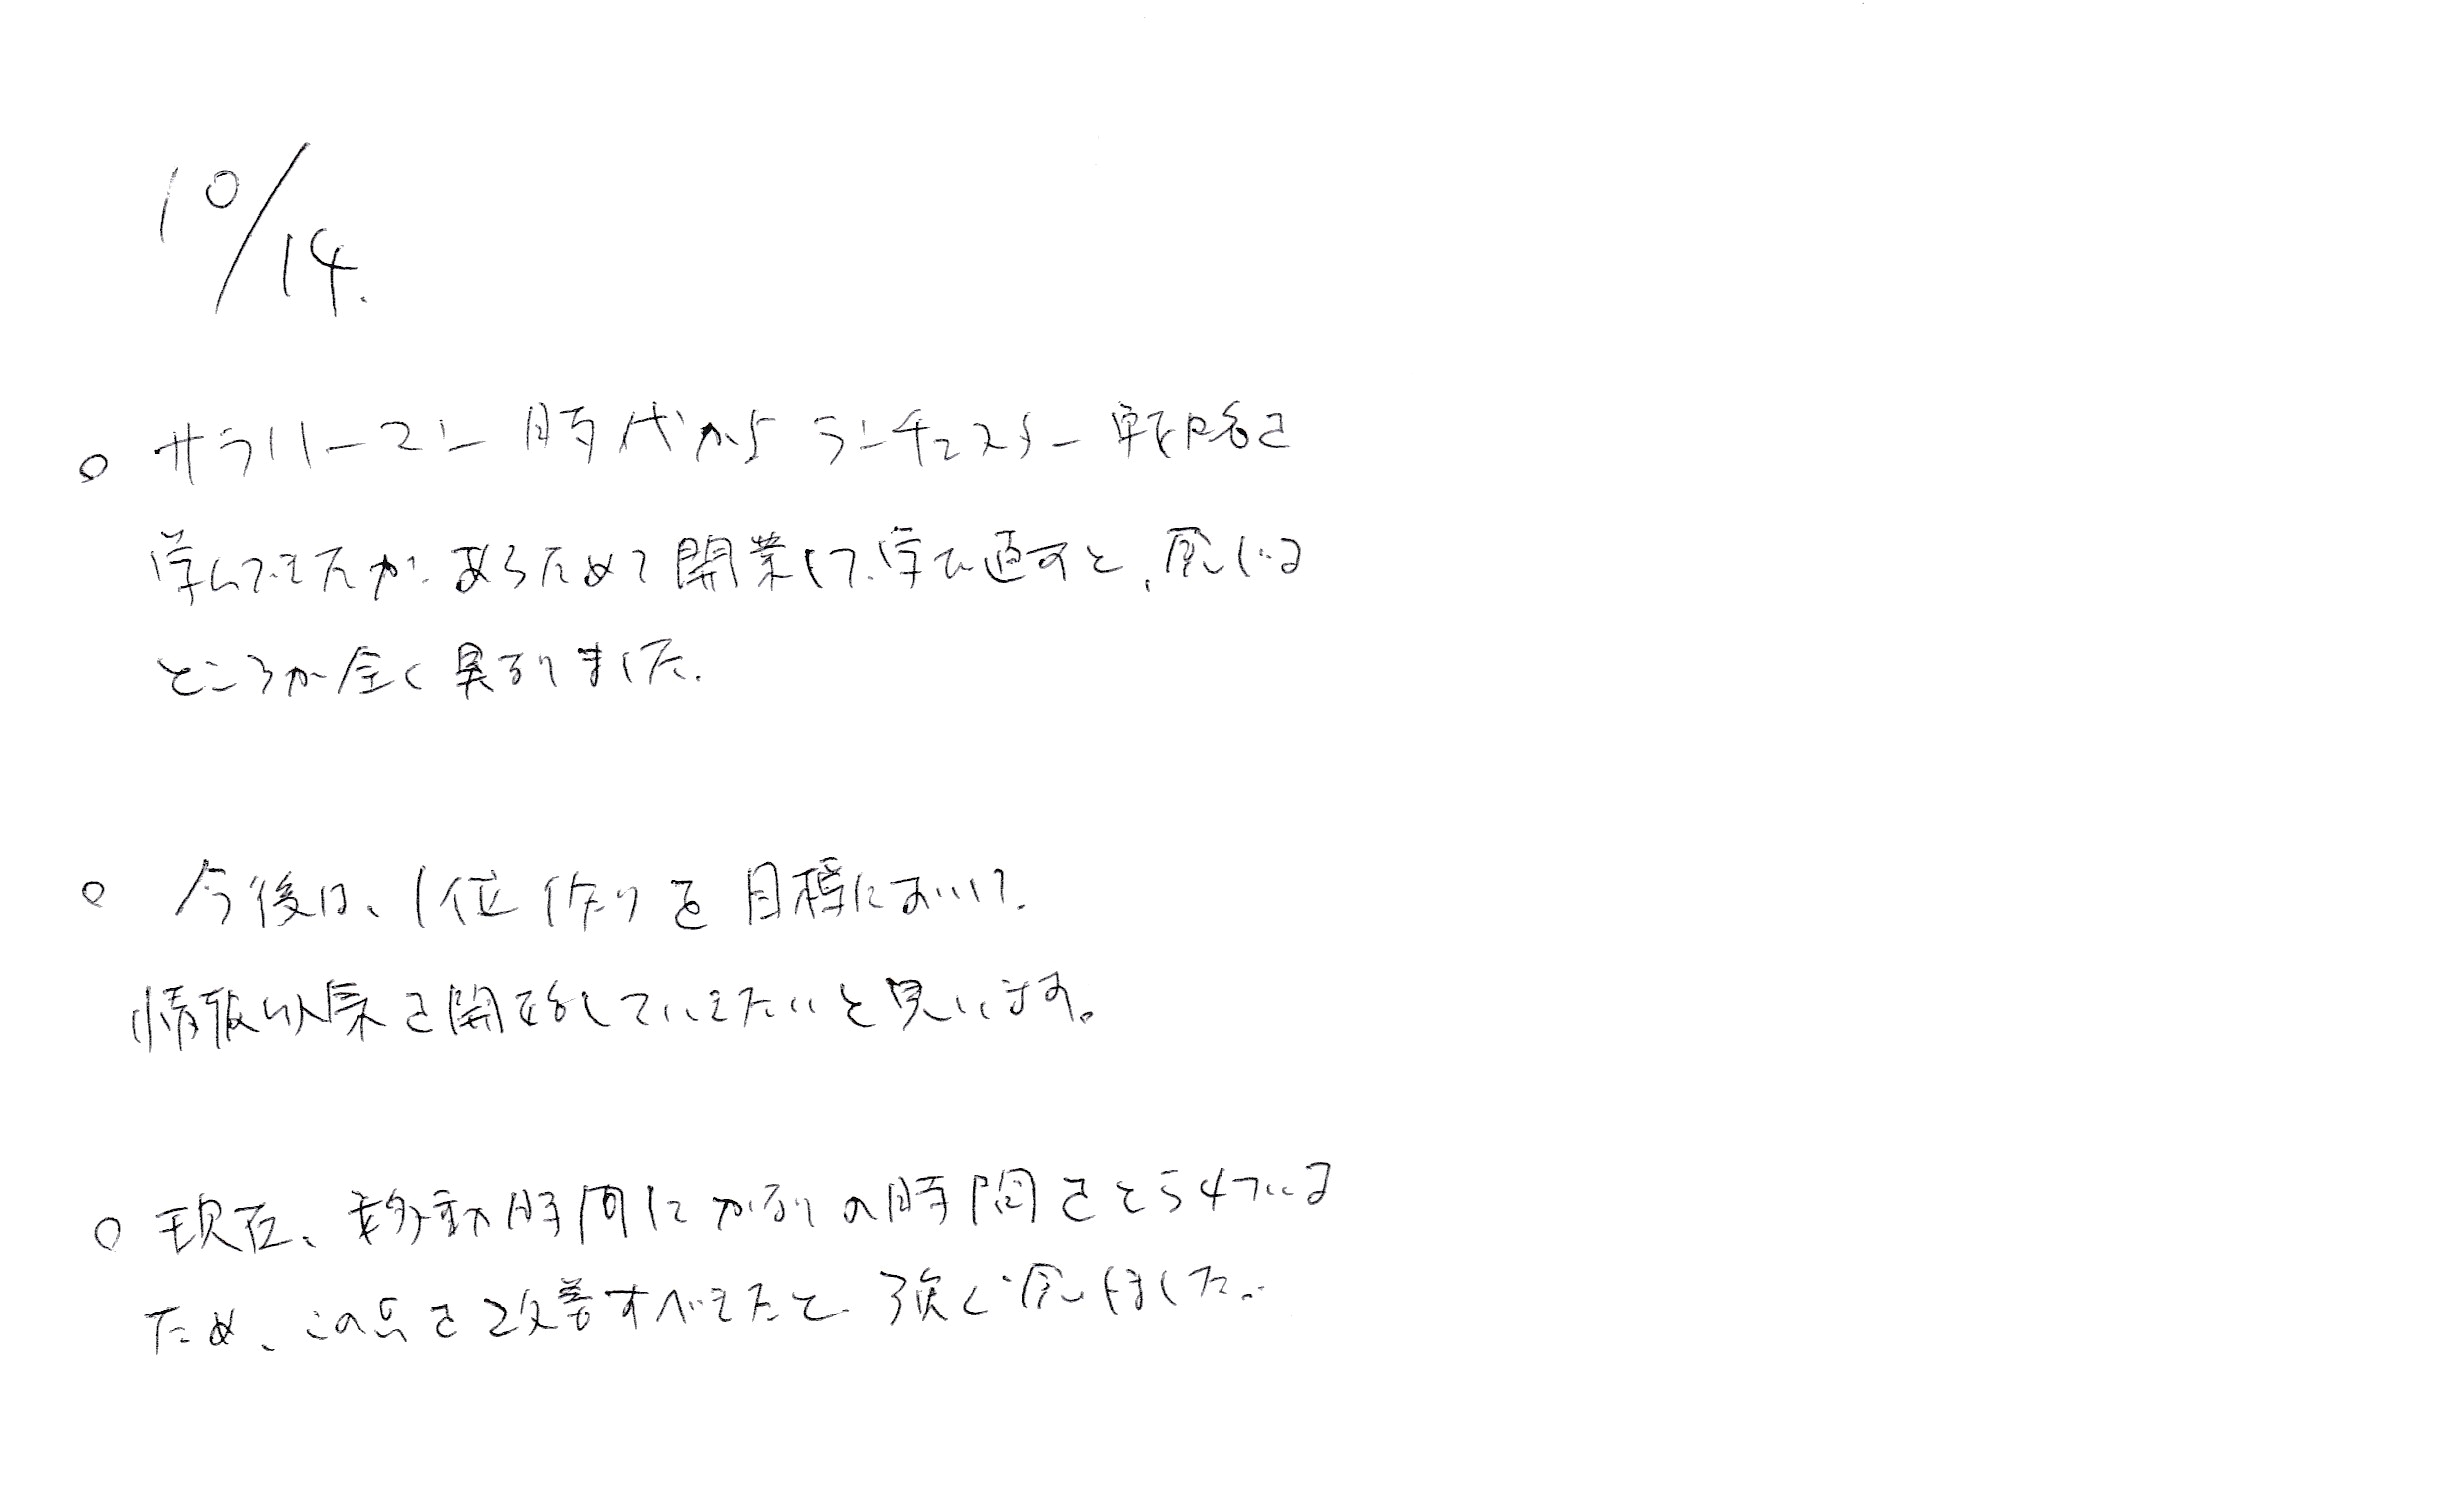 10/14.
○ サラリーマン時代からランチェスター戦略を
学んできたが、あらためて開業して、学び直すと、感じる
ところが全く異なりました。
○ 今後は、1位作りを目標において、
情報収集を開始していきたいと思います。
○ 現在、移動時間にかなりの時間をとられている
ため、この点を改善すべきだと、強く感じました。